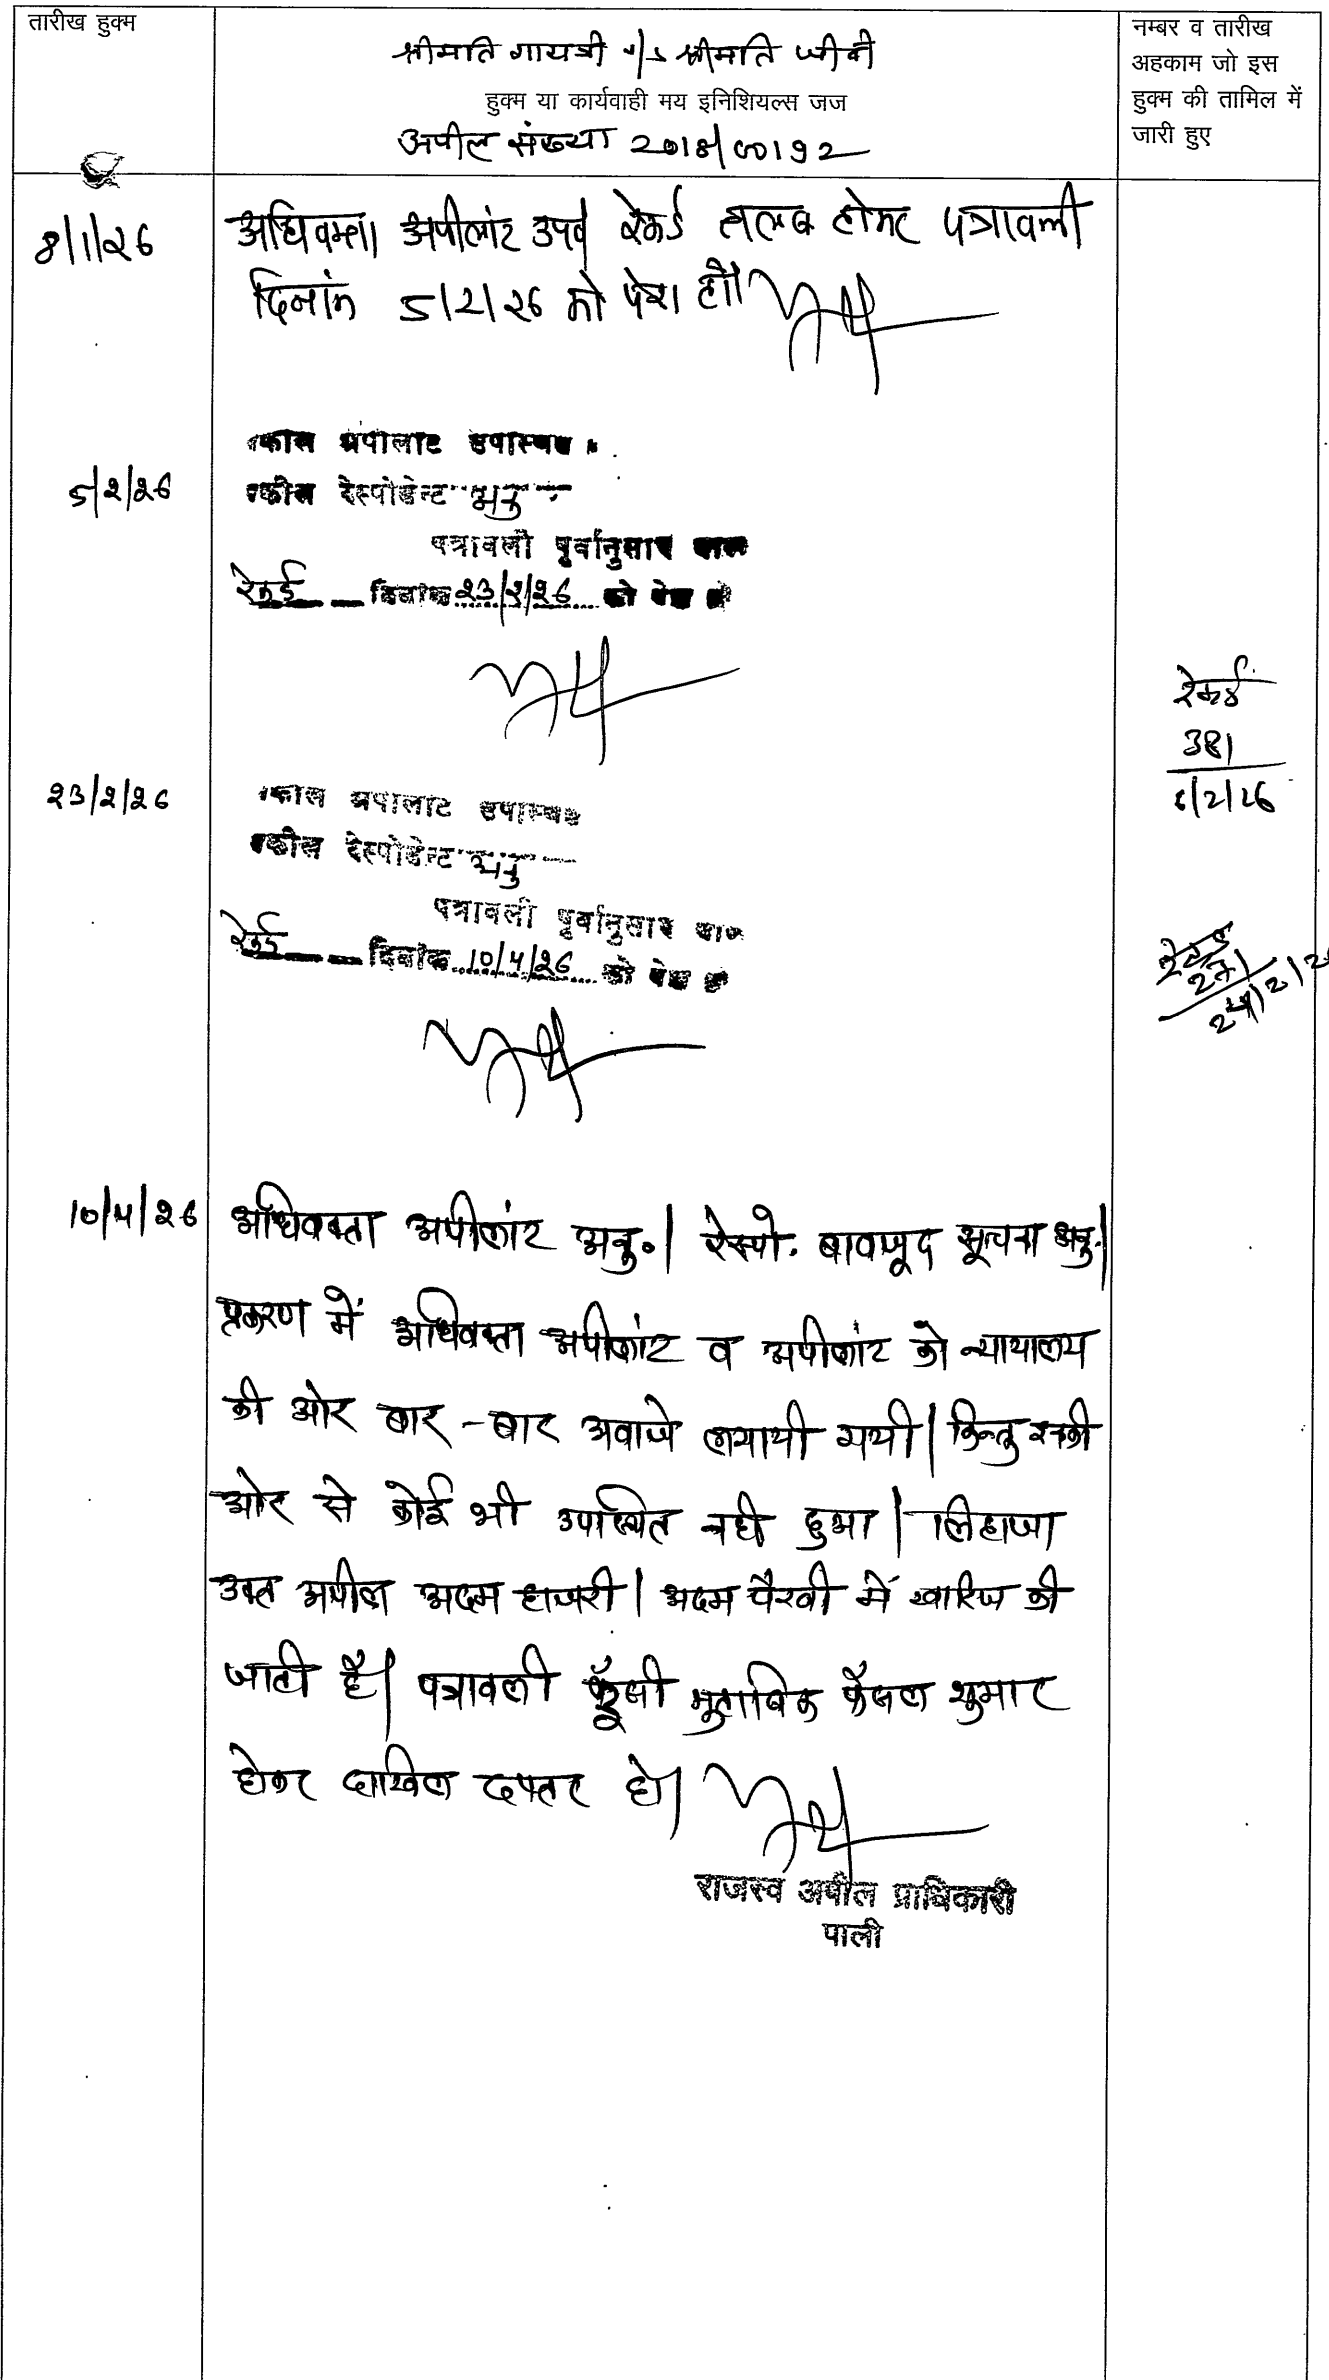 तारीख हुक्म
श्रीमति गायत्री v/s श्रीमति जीवी
हुक्म या कार्यवाही मय इनिशियल्स जज
अपील संख्या 2018/00192
नम्बर व तारीख
अहकाम जो इस
हुक्म की तामिल में
जारी हुए
8/1/26
अधिवक्ता अपीलांट उप० रेकर्ड तलब होकर पत्रावली
दिनांक 5/2/26 को पेश हो।
वकील अपीलांट उपस्थित ।
5/2/26
वकील रेस्पोडेन्ट अनु
पत्रावली पूर्वानुसार वास्ते
रेकर्ड दिनांक 23/2/26 को पेश हो
रेकर्ड
381
6/2/26
23/2/26
वकील अपीलांट उपस्थित
वकील रेस्पोडेन्ट अनु
पत्रावली पूर्वानुसार वास्ते
रेकर्ड दिनांक 10/4/26 को पेश हो
रेकर्ड
271
24/2/26
10/4/26
अधिवक्ता अपीलांट अनु०। रेस्पो. बावजूद सूचना अनु.।
प्रकरण में अधिवक्ता अपीलांट व अपीलांट को न्यायालय
की ओर बार-बार अवाजे लगायी गयी। किन्तु इनकी
ओर से कोई भी उपस्थित नही हुआ। लिहाजा
उक्त अपील अदम हाजरी। अदम पैरवी में खारिज की
जाती है। पत्रावली मुताबिक फैसल शुमार
होकर दाखिल दफ्तर हो।
राजस्व अपील प्राधिकारी
पाली